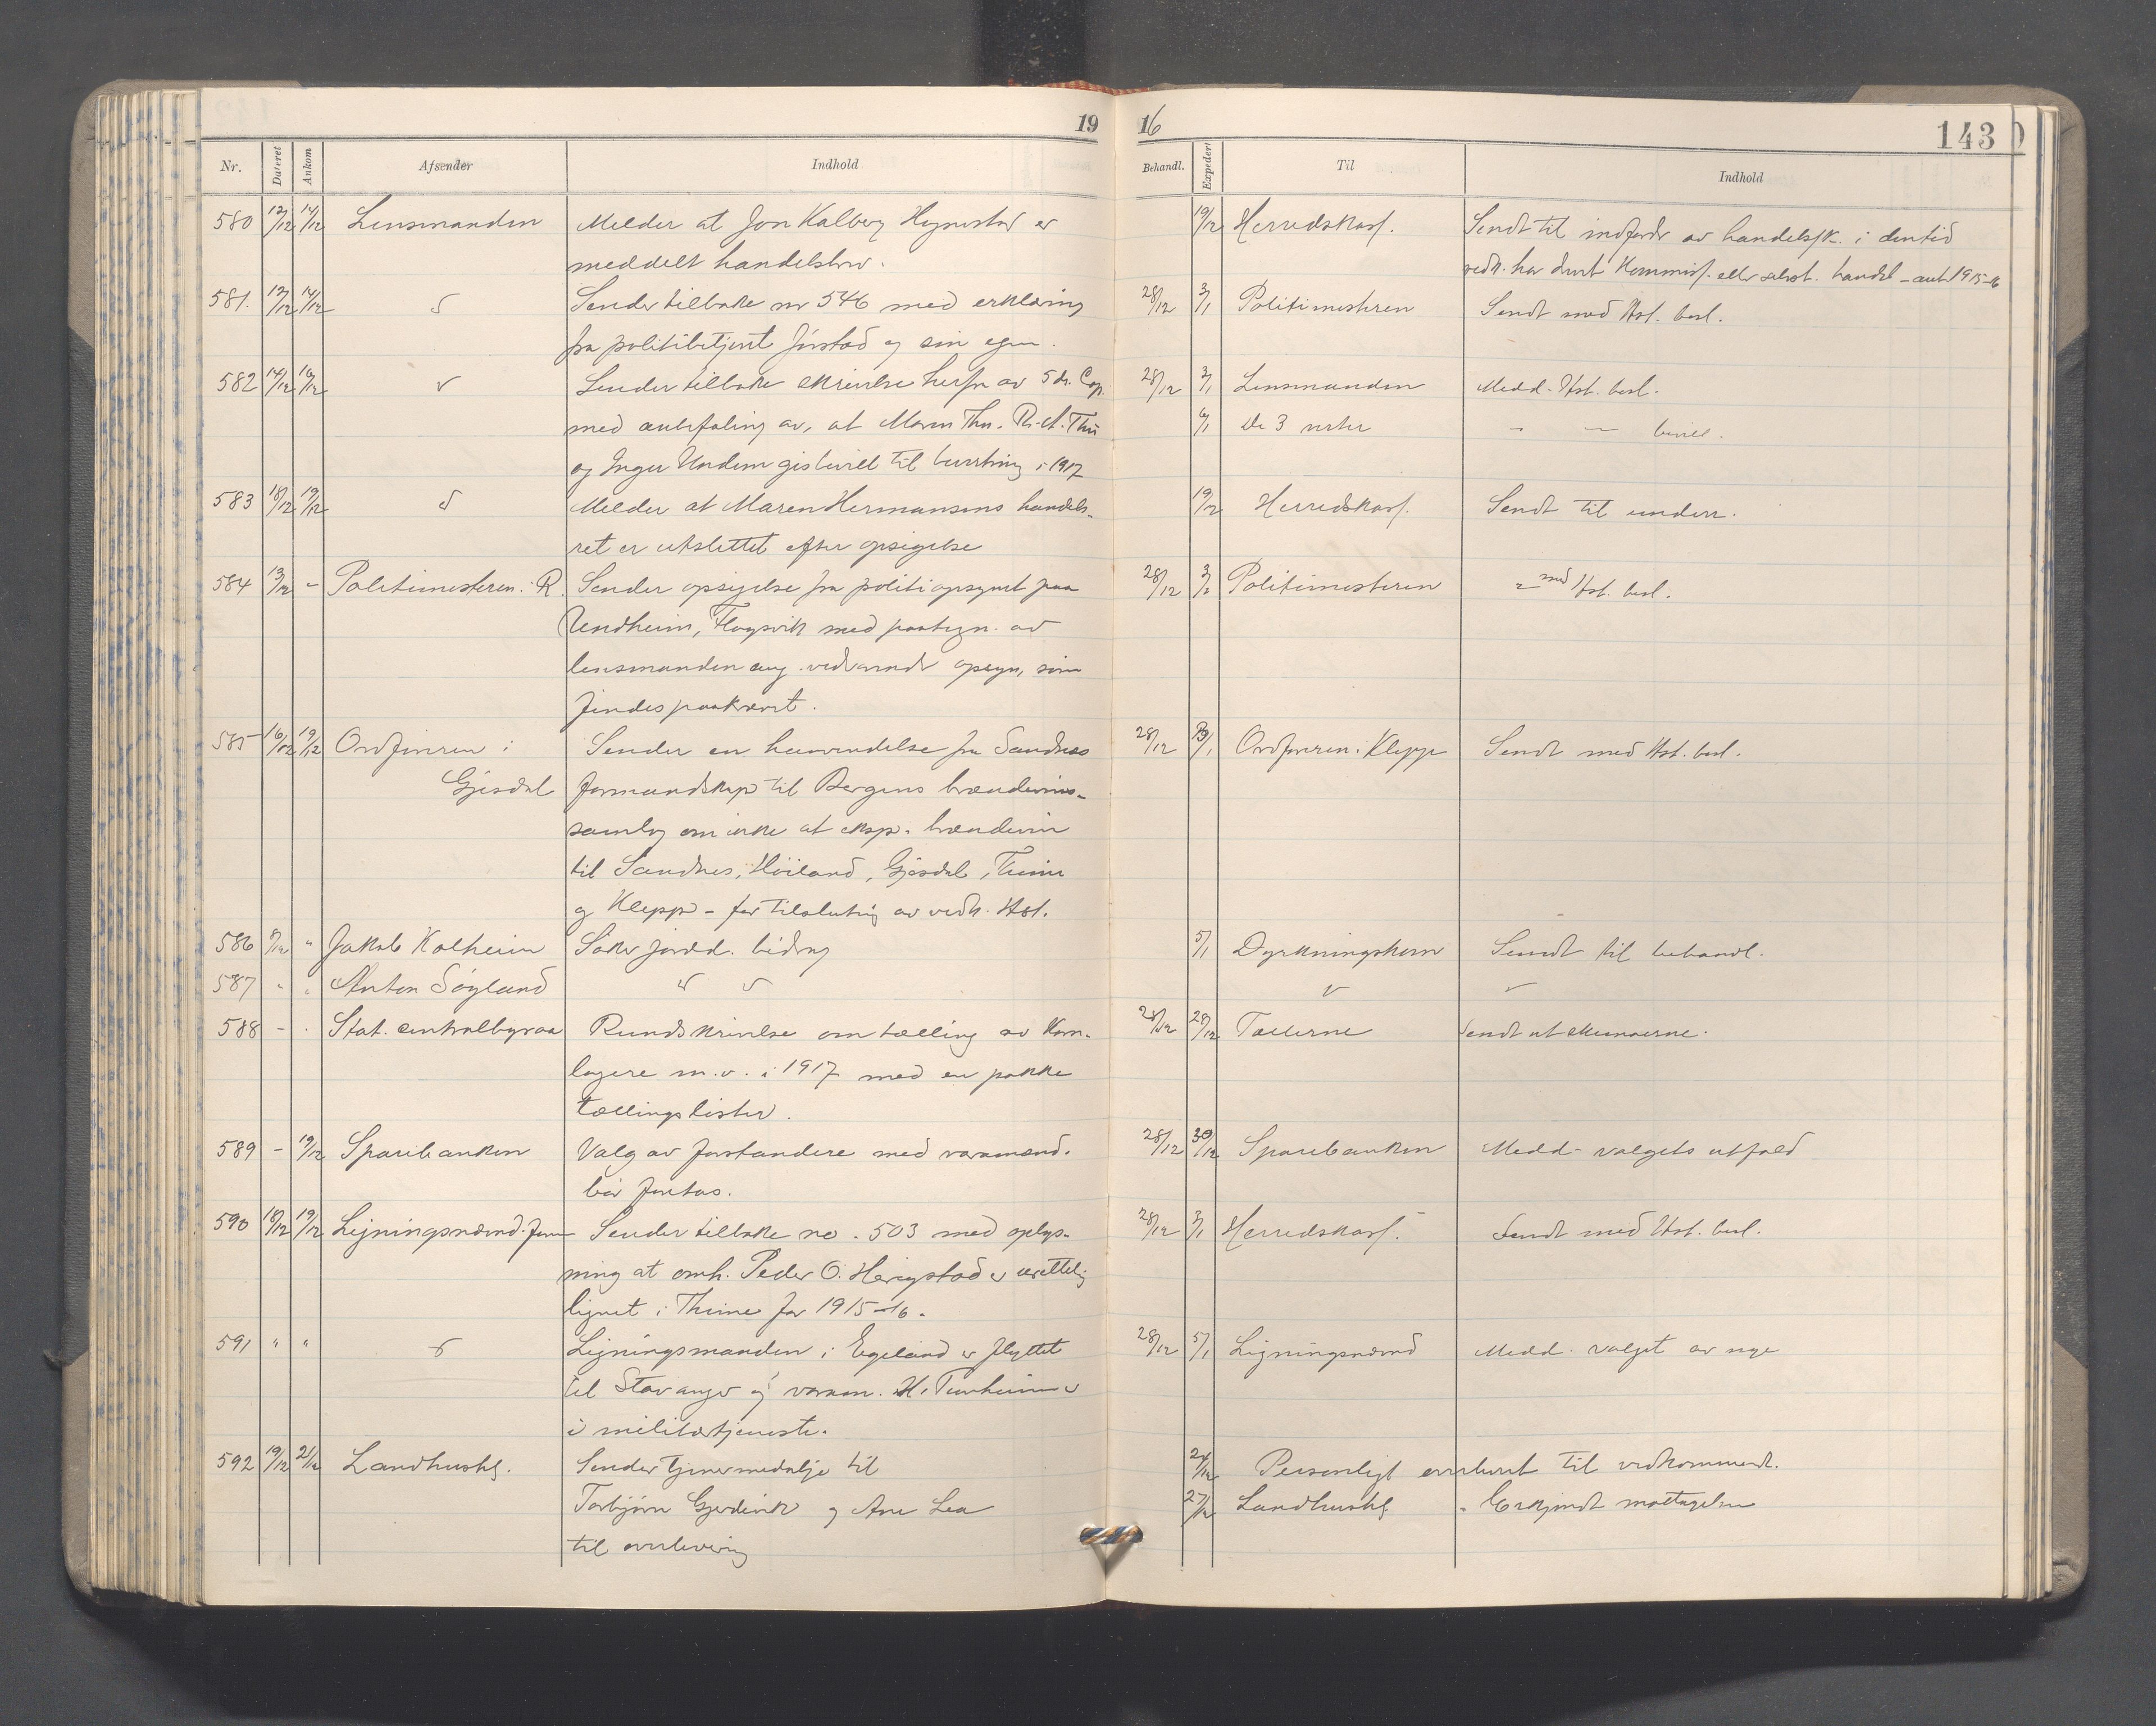 19 16 143
Nr. Dateret Ankom Afsender Indhold Behandl. Expedert Til Indhold
580 12/12 14/12 Lensmanden Melder at Jon Kalberg Hognestad er 19/12 Herredskass. Sendt til indfordr av handelssk. i dentid
meddelt handelsbrev. vedk. har drevt Kommiss. eller selvst. handel - antal 1915-16
581. 12/12 14/12 d Sender tilbake nr 546 med erklæring 28/12 3/1 Politimesteren Sendt med Hst. besl.
fra politibetjent Jørstad og sin egen.
582 14/12 16/12 d Sender tilbake skrivelse herfra av 5 ds. Cop. 28/12 3/1 Lensmanden Medd. Hst. besl.
med anbefaling av, at Maren Thu. R. A. Thu 6/1 De 3 verter - - bevill.
og Inger Undem gis bevill til bevertning i 1917
583 18/12 19/12 d Melder at Maren Hermansens handels- 19/12 Herredskass. Sendt til underr.
ret er utslettet efter opsigelse
584 13/12 - Politimesteren i R. Sender opsigelse fra politiopsynet paa 28/12 3/1 Politimesteren - med Hst. besl.
Undheim, Hagsvik med paategn. av
lensmanden ang. vedvarende opsyn, som
findes paakrævet.
585 16/12 19/12 Ordføreren i Sender en henvendelse fra Sandnes 28/12 3/1 Ordføreren i Klepp Sendt med Hst. besl.
Gjesdal formandskap til Bergens brændevins-
samlag om ikke at eksp. brændevin
til Sandnes, Høiland, Gjesdal, Thime
og Klepp - før tilslutning av vedk. Hst.
586 9/12 " Jakob Kalheim Søker jordd. bidrag 5/1 Dyrkningskom Sendt til behandl.
587 " " Anton Söyland d d d
588 - . Stat. centralbyraa Rundskrivelse om tælling av Korn- 28/12 29/12 Tællerne Sendt ut skemaerne.
lagere m.v. i 1917 med en pakke
tællingslister.
589 - 19/12 Sparebanken Valg av forstandere med varamænd. 28/12 30/12 Sparebanken Medd. valgets utfald
bør foretas.
590 18/12 19/12 Ligningsnævnd. form Sender tilbake no. 503 med oplys- 28/12 3/1 Herredskass. Sendt med Hst. besl.
ning at omh. Peder O. Herigstad er urettelig
lignet i Thime for 1915-16.
591 " " d Ligningsmanden i Egeland er flyttet 28/12 5/1 Ligningsnævnd Medd. valget av nye
til Stavanger og varam. H. Tunheim er
i militærtjeneste.
592 19/12 21/12 Landhushs. Sender tjenermedalje til 24/12 Personligt overlevert til vedkommende.
Torbjørn Gjerdevik og Ane Lea 27/12 Landhushs - Erkjendt mottagelsen
til overlevering